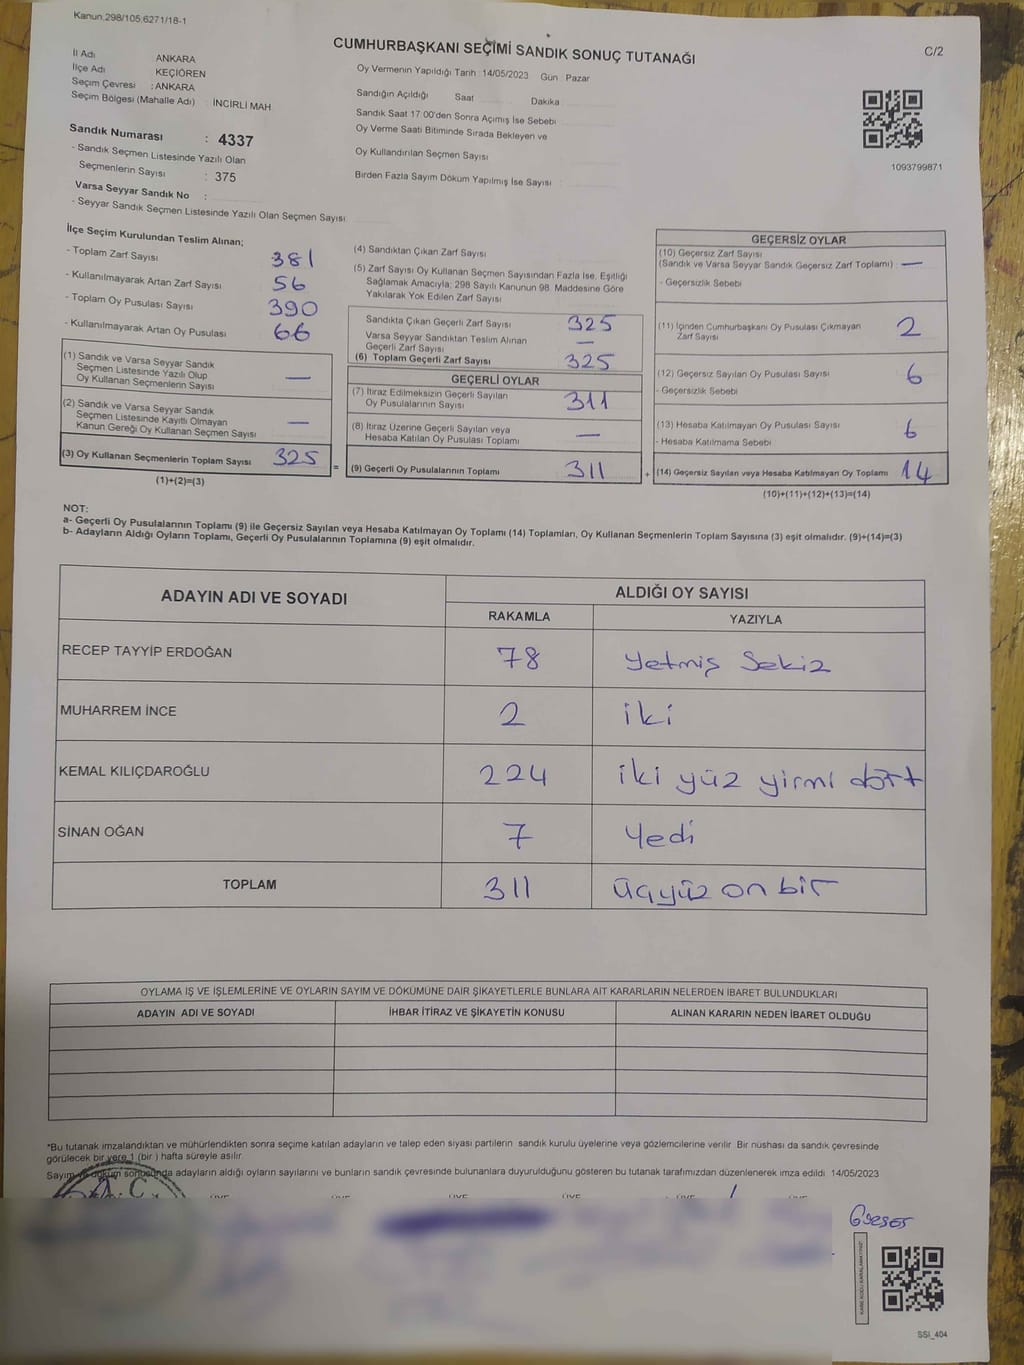 Kanun;298/105,6271/18-1
CUMHURBAŞKANI SEÇİMİ SANDIK SONUÇ TUTANAĞI
C/2
İl Adı ANKARA
İlçe Adı KEÇİÖREN
Seçim Çevresi : ANKARA
Seçim Bölgesi (Mahalle Adı) : İNCİRLİ MAH
Sandık Numarası : 4337
- Sandık Seçmen Listesinde Yazılı Olan
Seçmenlerin Sayısı : 375
Varsa Seyyar Sandık No :
- Seyyar Sandık Seçmen Listesinde Yazılı Olan Seçmen Sayısı
Oy Vermenin Yapıldığı Tarih : 14/05/2023 Gün : Pazar
Sandığın Açıldığı Saat Dakika
Sandık Saat 17:00'den Sonra Açımış İse Sebebi
Oy Verme Saati Bitiminde Sırada Bekleyen ve
Oy Kullandırılan Seçmen Sayısı
Birden Fazla Sayım Döküm Yapılmış İse Sayısı :
1093799871
İlçe Seçim Kurulundan Teslim Alınan;
- Toplam Zarf Sayısı 381
- Kullanılmayarak Artan Zarf Sayısı 56
- Toplam Oy Pusulası Sayısı 390
- Kullanılmayarak Artan Oy Pusulası 66
(1) Sandık ve Varsa Seyyar Sandık
Seçmen Listesinde Yazılı Olup
Oy Kullanan Seçmenlerin Sayısı —
(2) Sandık ve Varsa Seyyar Sandık
Seçmen Listesinde Kayıtlı Olmayan
Kanun Gereği Oy Kullanan Seçmen Sayısı —
(3) Oy Kullanan Seçmenlerin Toplam Sayısı 325
(1)+(2)=(3)
(4) Sandıktan Çıkan Zarf Sayısı
(5) Zarf Sayısı Oy Kullanan Seçmen Sayısından Fazla İse, Eşitliği
Sağlamak Amacıyla; 298 Sayılı Kanunun 98. Maddesine Göre
Yakılarak Yok Edilen Zarf Sayısı
Sandıkta Çıkan Geçerli Zarf Sayısı 325
Varsa Seyyar Sandıktan Teslim Alınan
Geçerli Zarf Sayısı —
(6) Toplam Geçerli Zarf Sayısı 325
GEÇERLİ OYLAR
(7) İtiraz Edilmeksizin Geçerli Sayılan
Oy Pusulalarının Sayısı 311
(8) İtiraz Üzerine Geçerli Sayılan veya
Hesaba Katılan Oy Pusulası Toplamı —
= (9) Geçerli Oy Pusulalarının Toplamı 311
GEÇERSİZ OYLAR
(10) Geçersiz Zarf Sayısı
(Sandık ve Varsa Seyyar Sandık Geçersiz Zarf Toplamı) : —
- Geçersizlik Sebebi
(11) İçinden Cumhurbaşkanı Oy Pusulası Çıkmayan
Zarf Sayısı 2
(12) Geçersiz Sayılan Oy Pusulası Sayısı 6
- Geçersizlik Sebebi
(13) Hesaba Katılmayan Oy Pusulası Sayısı 6
- Hesaba Katılmama Sebebi
+ (14) Geçersiz Sayılan veya Hesaba Katılmayan Oy Toplamı 14
(10)+(11)+(12)+(13)=(14)
NOT:
a- Geçerli Oy Pusulalarının Toplamı (9) ile Geçersiz Sayılan veya Hesaba Katılmayan Oy Toplamı (14) Toplamları, Oy Kullanan Seçmenlerin Toplam Sayısına (3) eşit olmalıdır. (9)+(14)=(3)
b- Adayların Aldığı Oyların Toplamı, Geçerli Oy Pusulalarının Toplamına (9) eşit olmalıdır.
ADAYIN ADI VE SOYADI
ALDIĞI OY SAYISI
RAKAMLA YAZIYLA
RECEP TAYYİP ERDOĞAN 78 Yetmiş Sekiz
MUHARREM İNCE 2 iki
KEMAL KILIÇDAROĞLU 224 iki yüz yirmi dört
SİNAN OĞAN 7 Yedi
TOPLAM 311 üçyüz on bir
OYLAMA İŞ VE İŞLEMLERİNE VE OYLARIN SAYIM VE DÖKÜMÜNE DAİR ŞİKAYETLERLE BUNLARA AİT KARARLARIN NELERDEN İBARET BULUNDUKLARI
ADAYIN ADI VE SOYADI İHBAR İTİRAZ VE ŞİKAYETİN KONUSU ALINAN KARARIN NEDEN İBARET OLDUĞU
*Bu tutanak imzalandıktan ve mühürlendikten sonra seçime katılan adayların ve talep eden siyasi partilerin sandık kurulu üyelerine veya gözlemcilerine verilir. Bir nüshası da sandık çevresinde
görülecek bir yere 1 (bir) hafta süreyle asılır.
Sayım ve döküm sonucunda adayların aldığı oyların sayılarını ve bunların sandık çevresinde bulunanlara duyurulduğunu gösteren bu tutanak tarafımızdan düzenlenerek imza edildi. 14/05/2023
T.C.
ÜYE ÜYE ÜYE ÜYE ÜYE ÜYE
SSI_404